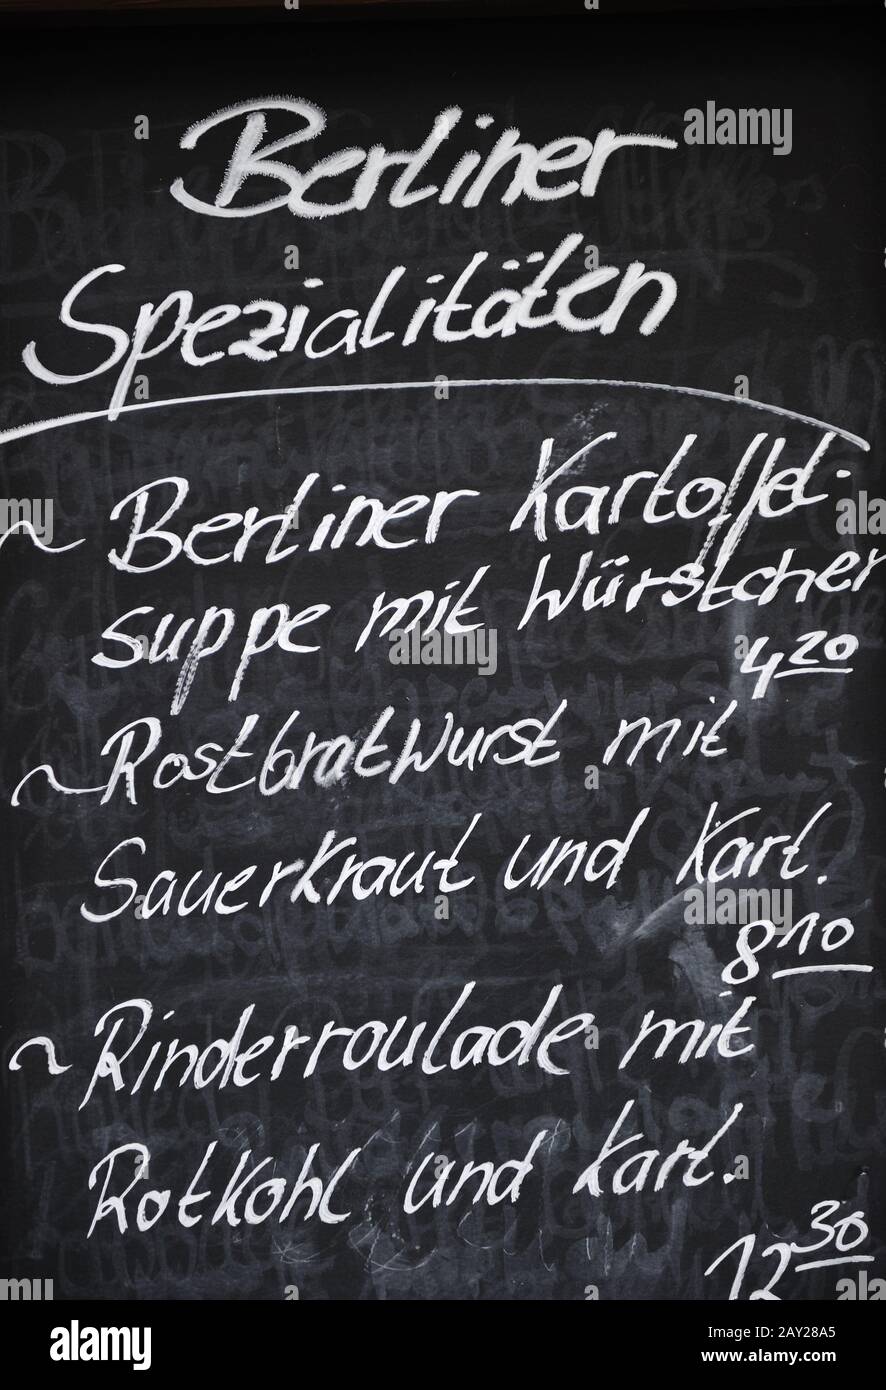 Berliner
Spezialitäten
~ Berliner Kartoffel-
suppe mit Würstchen
4 20
~ Rostbratwurst mit
Sauerkraut und Kart.
8 10
~ Rinderroulade mit
Rotkohl und Kart.
12 30
alamy
Image ID: 2AY28A5
www.alamy.com